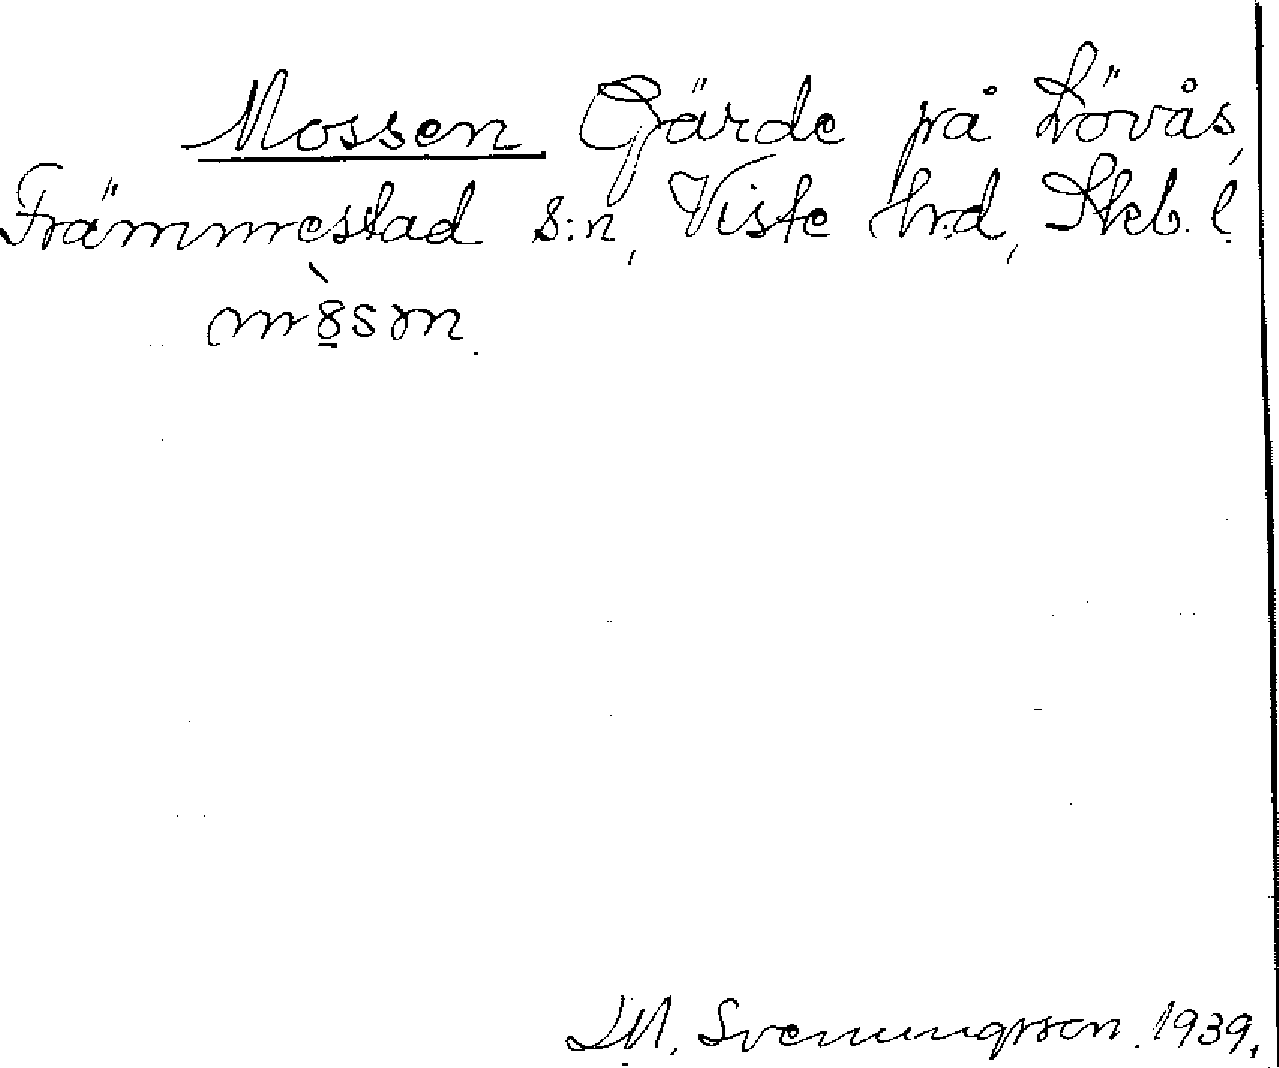 Mossen Gärde på Lövås,
Främmestad s:n, Viste hrd, Skb. l.
mòsɔn
Svenungsson. 1939.